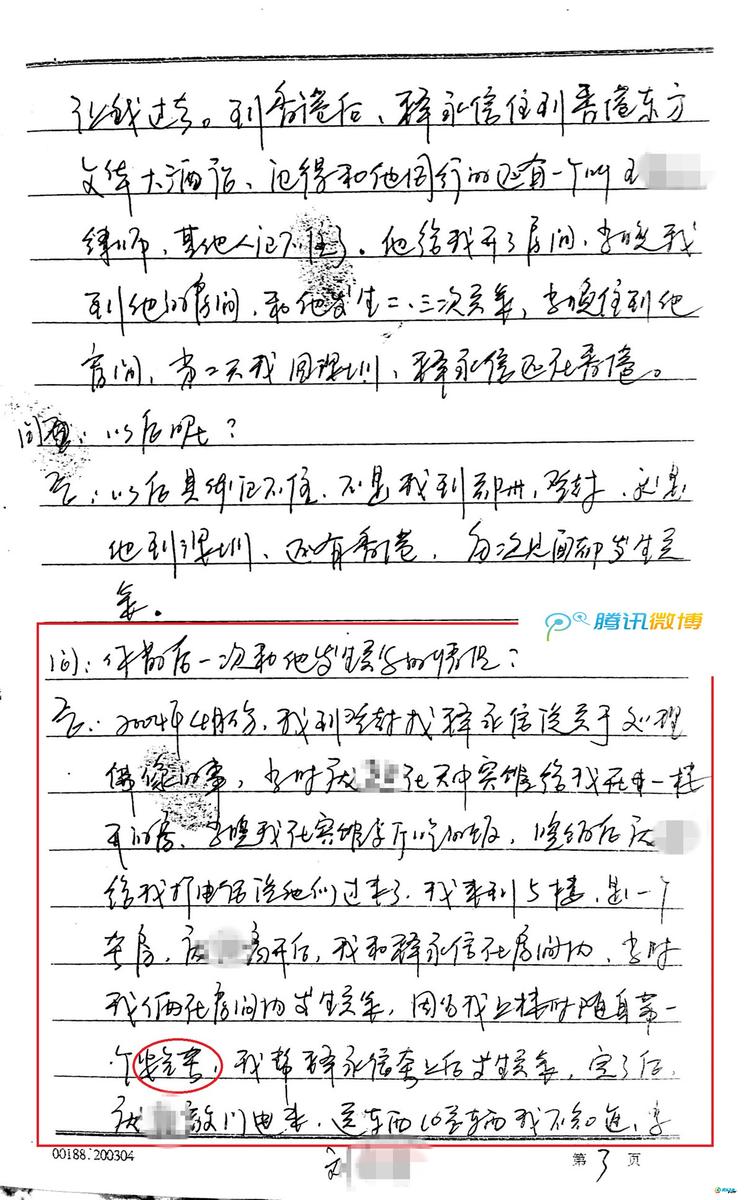 让我过去。到香港后、释永信住到香港东方
文华大酒店、记得和他同行的还有一个叫王
律师，其他人记不住了。他给我开了房间，当晚我
到他的房间，和他发生二、三次关系，当晚住到他
房间，第二天我回深圳、释永信还在香港。
问：以后呢？
答：以后具体记不住，不是我到郑州，登封，就是
他到深圳、还有香港，每次见面都发生关
系。
腾讯微博
问：你最后一次和他发生关系的情况？
答：2004年4月份，我到登封找释永信谈关于处理
佛像的事，当时 在天中宾馆给我在一楼
开的房，当晚我在宾馆餐厅吃的饭，吃饭后
给我打电话说他们过来了，我来到5楼，是一个
套房，离开后，我和释永信在房间内，当时
我们俩在房间内发生关系，因为我上楼时随身带一
个安全套，我帮释永信套上后发生关系，完了后，
敲门进来，送东西 什么东西我不知道，当
00188.200304
第3页